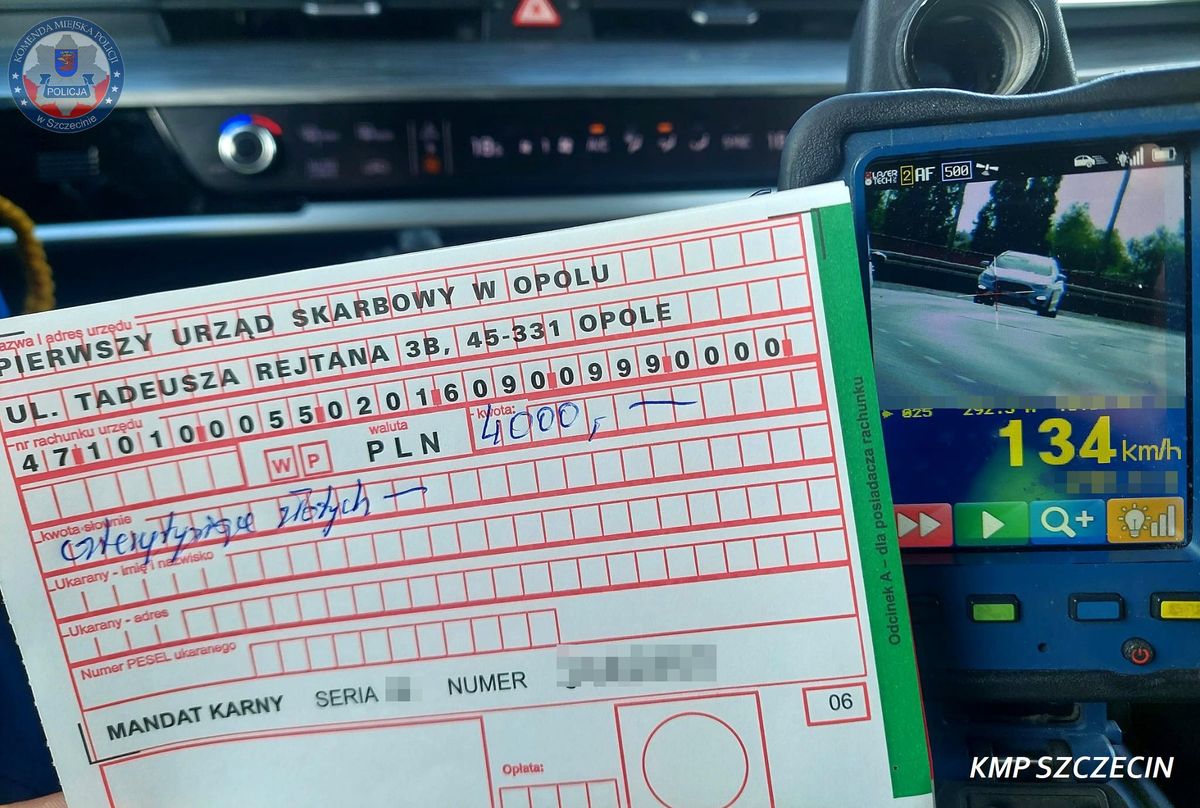 KOMENDA MIEJSKA POLICJI
POLICJA
w Szczecinie
LASER TECH 2 AF 500
134 km/h
azwa i adres urzędu
PIERWSZY URZĄD SKARBOWY W OPOLU
UL. TADEUSZA REJTANA 3B, 45-331 OPOLE
nr rachunku urzędu
47101000550201609009990000
W P
waluta
PLN
kwota:
4000,—
kwota słownie
czterytysiące złotych —
Ukarany - imię i nazwisko
Ukarany - adres
Numer PESEL ukaranego
MANDAT KARNY SERIA NUMER
06
Opłata:
Odcinek A – dla posiadacza rachunku
KMP SZCZECIN